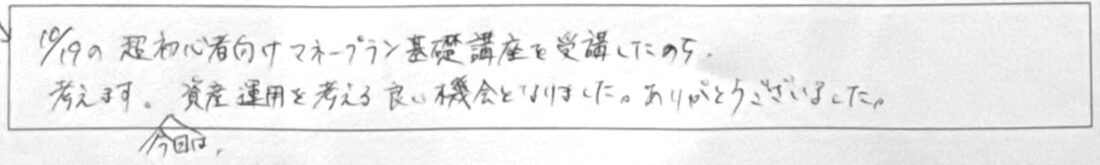 10/19の超初心者向けマネープラン基礎講座を受講したのち、
考えます。資産運用を考える良い機会となりました。ありがとうございました。
今回は、